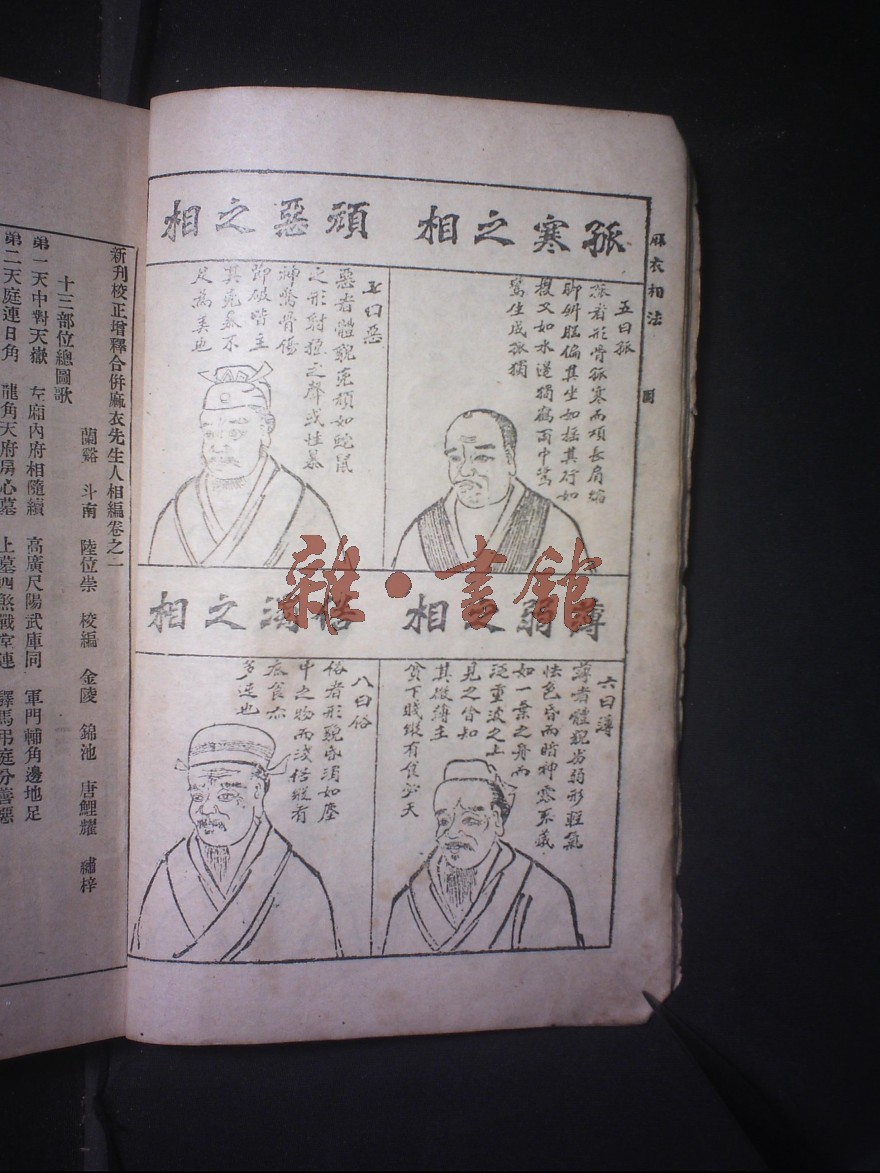 麻衣相法
圖
孤寒之相
頑惡之相
五曰孤
孤者形骨孤寒而項長肩縮
脚斜腦偏其坐如搖其行如
攫又如水邊獨鶴雨中鷺
鷥生成孤獨
七曰惡
惡者體貌兇頑如蛇鼠
之形豺狼之聲或性暴
神驚骨傷
節破皆主
其兇暴不
足為美也
薄弱之相
俗濁之相
六曰薄
薄者體貌劣弱形輕氣
怯色昏而暗神露不藏
如一葉之舟而
泛重波之上
見之皆知
其微薄主
貧下賤縱有食必夭
八曰俗
俗者形貌昏濁如塵
中之物而淺俗縱有
衣食亦
多迍也
新刊校正增釋合併麻衣先生人相編卷之一
蘭谿 斗南 陸位崇 校編 金陵 錦池 唐鯉耀 繡梓
十三部位總圖歌
第一天中對天嶽 左廂內府相隨續 高廣尺陽武庫同 軍門輔角邊地足
第二天庭連日角 龍角天府房心墓 上墓四煞戰堂連 驛馬弔庭分善惡
雜·書館